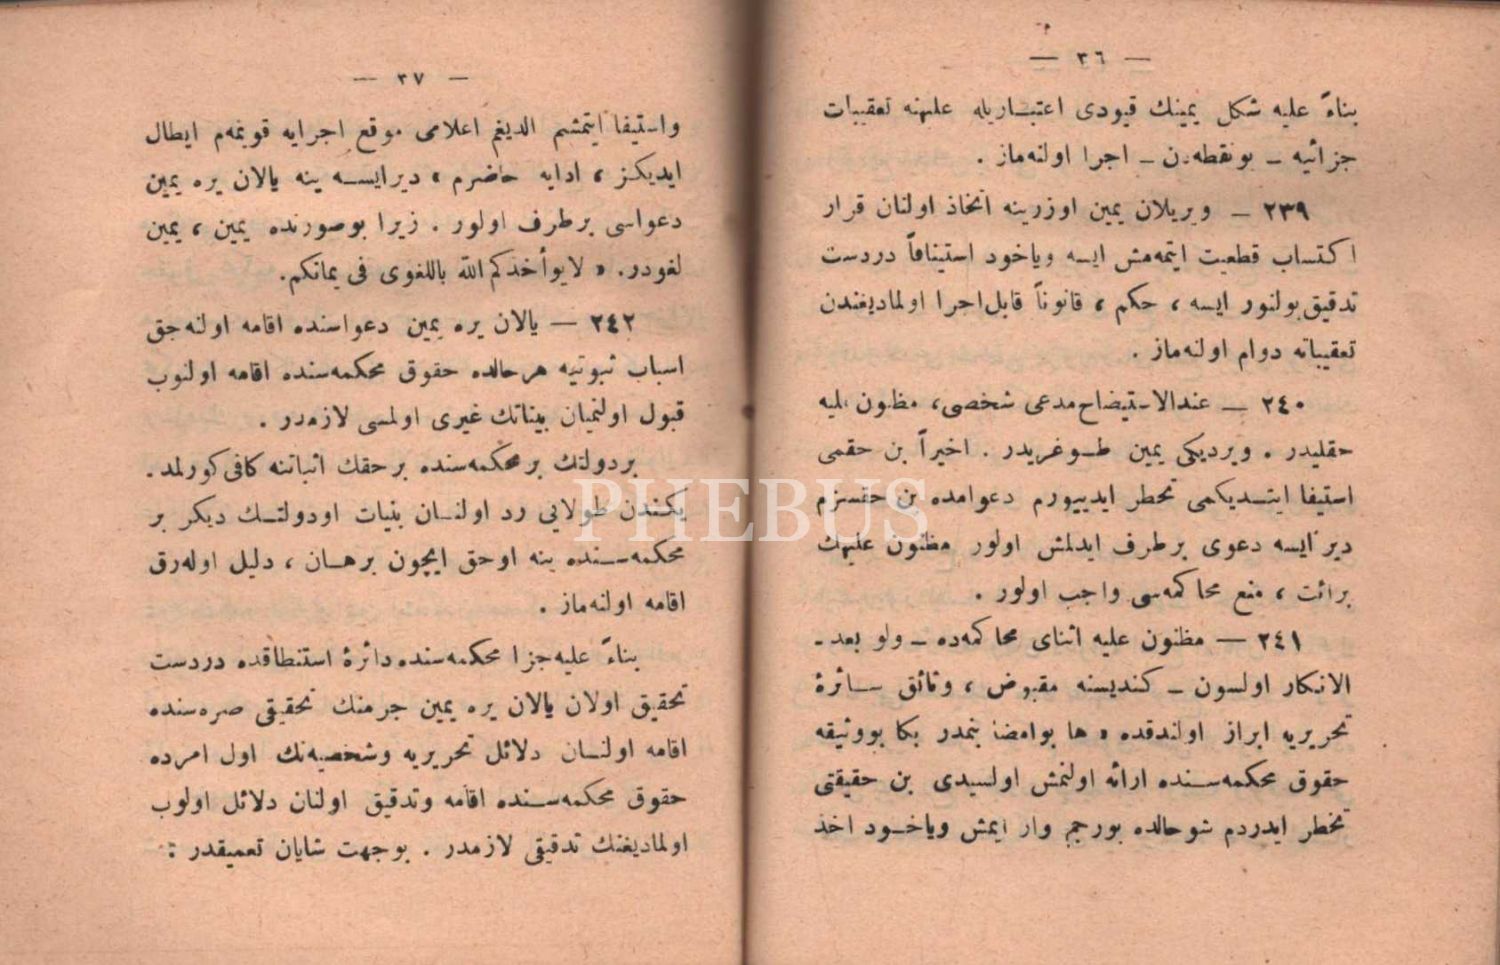 — ٣٦ —
بناءً عليه شكل يمينك قيودى اعتباريله عليهنه تعقيبات
جزائيه – بونقطه‌دن – اجرا اولنه‌ماز .
٢٣٩ – ويريلان يمين اوزرينه اتخاذ اولنان قرار
اكتساب قطعيت ايتمه‌مش ايسه وياخود استينافاً دردست
تدقيق‌بولنور ايسه ، حكم ، قانوناً قابل‌اجرا اولماديغندن
تعقيباته دوام اولنه‌ماز .
٢٤٠ – عندالاستيضاح‌مدعى شخصى، مظنون عليه
حقليدر . ويرديكى يمين طوغريدر . اخيراً بن حقمى
استيفا ايتديكمى تخطر ايدييورم دعوامده بن حقسزم
ديرايسه دعوى برطرف ايدلمش اولور مظنون عليهك
برائت ، منع محاكمه‌سى واجب اولور .
٢٤١ — مظنون عليه اثناى محاكمه‌ده – ولو بعد –
الانكار اولسون – كنديسنه مقبوض ، وثائق سائرهٔ
تحريريه ابراز اولندقده « ها بوامضا بنمدر بكا بووثيقه
حقوق محكمه‌سنده ارائه اولنمش اولسيدى بن حقيقتى
تخطر ايدردم شوحالده بورجم وار ايمش وياخود اخذ
— ٣٧ —
واستيفا ايتمشم الديغم اعلامى موقع اجرايه قويمه‌م ايطال
ايديكز ، ادايه حاضرم » ديرايسه ينه يالان يره يمين
دعواسى برطرف اولور . زيرا بوصورنده يمين ، يمين
لغودر. « لايوأخذكم الله باللغوى فى يمانكم.
٢٤٢ — يالان يره يمين دعواسنده اقامه اولنه‌جق
اسباب ثبوتيه هرحالده حقوق محكمه‌سنده اقامه اولنوب
قبول اولنميان بيناتك غيرى اولمسى لازمدر .
بردولتك برمحكمه‌سنده برحقك اثباتنه كافى‌كورلمد.
يكندن طولايى رد اولنان بنيات اودولتك ديكر بر
محكمه‌سنده ينه اوحق ايچون برهان ، دليل اوله‌رق
اقامه اولنه‌ماز .
بناءً عليه‌جزا محكمه‌سنده دائرهٔ استنطاقده دردست
تحقيق اولان يالان يره يمين جرمنك تحقيقى صره‌سنده
اقامه اولنان دلائل تحريريه وشخصيه‌نك اول امرده
حقوق محكمه‌سنده اقامه وتدقيق اولنان دلائل اولوب
اولماديغنك تدقيقى لازمدر . بوجهت شايان تعميقدر :
PHEBUS